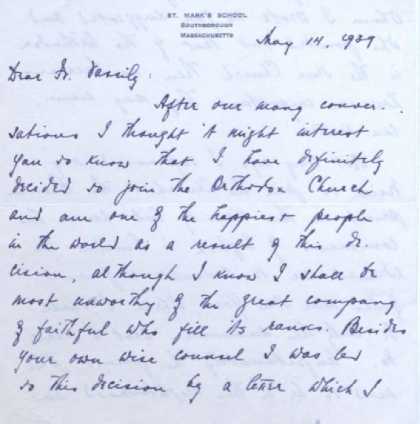 ST. MARK'S SCHOOL
SOUTHBOROUGH
MASSACHUSETTS
May 14, 1939
Dear Fr. Vassily:
After our many conver-
sations I thought it might interest
you to know that I have definitely
decided to join the Orthodox Church
and am one of the happiest people
in the world as a result of this de-
cision, although I know I shall be
most unworthy of the great company
of faithful who fill its ranks. Besides
your own wise counsel I was led
to this decision by a letter which I